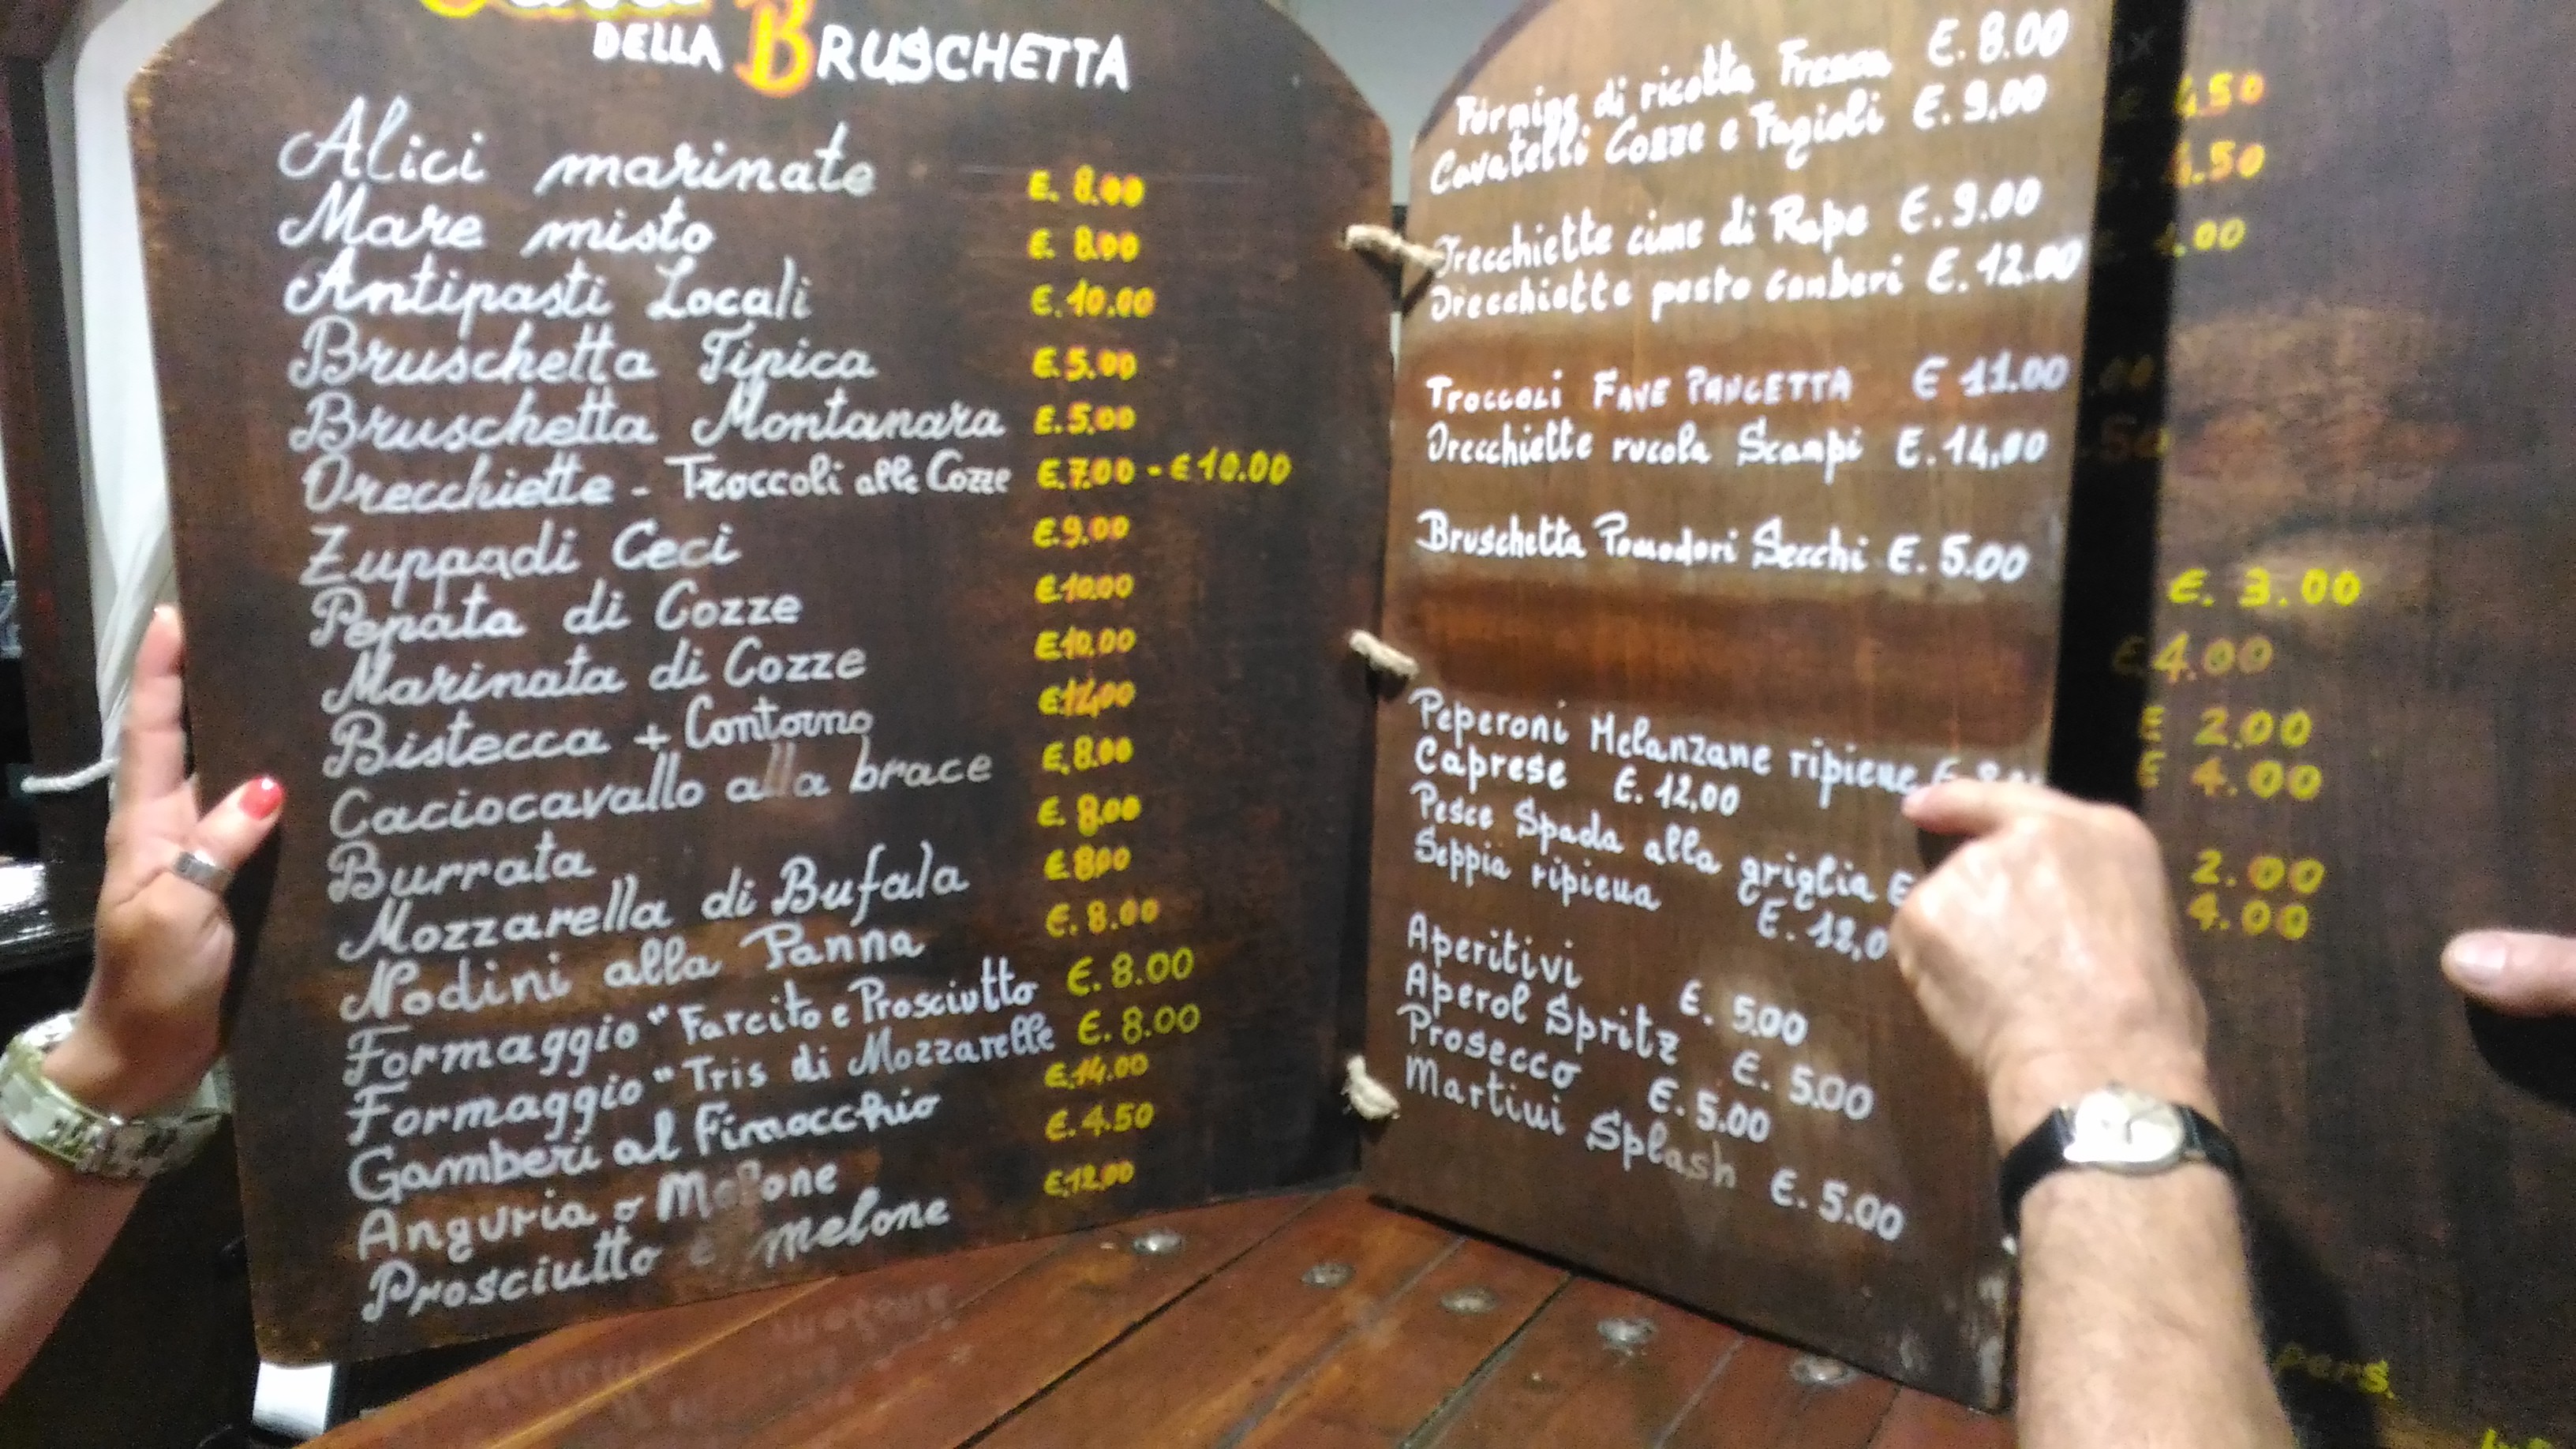 DELLA BRUSCHETTA
Alici marinate E. 8.00
Mare misto E. 8.00
Antipasti Locali E. 10.00
Bruschetta Tipica E. 5.00
Bruschetta Montanara E. 5.00
Orecchiette - Troccoli alle Cozze E. 7.00 - € 10.00
Zuppa di Ceci E. 9.00
Pepata di Cozze E. 10.00
Marinata di Cozze E. 10.00
Bistecca + Contorno
Caciocavallo alla brace E. 8.00
Burrata E. 8.00
Mozzarella di Bufala E. 8.00
Nodini alla Panna E. 8.00
Formaggio "Farcito e Prosciutto E. 8.00
Formaggio "Tris di Mozzarelle E. 8.00
Gamberi al Finocchio E. 14.00
Anguria o Melone E. 4.50
Prosciutto e melone E. 12.00
di ricotta Fresca E. 8.00
Cavatelli Cozze e Fagioli E. 9.00
Orecchiette cime di Rape E. 9.00
Orecchiette pesto Gamberi E. 12.00
TROCCOLI FAVE PANCETTA € 11.00
Orecchiette rucola Scampi E. 14.00
Bruschetta Pomodori Secchi E. 5.00
Peperoni Melanzane ripiene
Caprese E. 12,00
Pesce Spada alla griglia E
Seppia ripiena E. 12,0
Aperitivi E. 5.00
Aperol Spritz E. 5.00
Prosecco E. 5.00
Martini Splash E. 5.00
4.50
.50
.00
E. 3.00
E 4.00
E 2.00
E 4.00
2.00
4.00
pers.